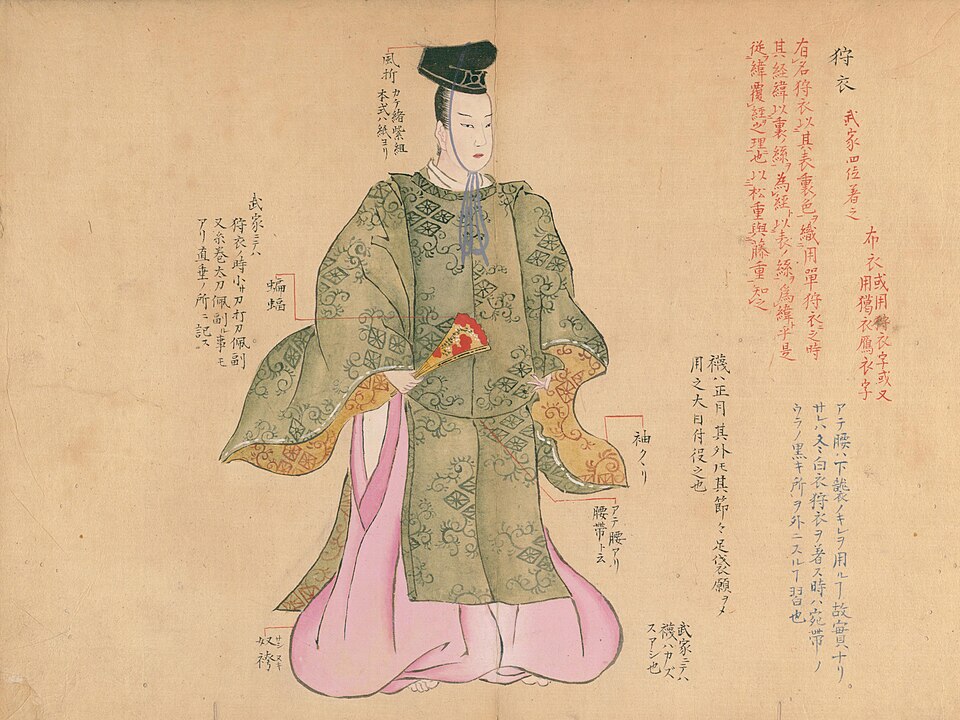 狩衣
武家四位著之
布衣或用狩衣字或又
用獦衣鴈衣字
有名狩衣以其表裏色ヲ織用單狩衣之時
其経緯以裏ノ絲ヲ為經以表ノ絲ヲ為緯乎是
従緯覆經之理也以松重與藤重知之
アテ腰ハ下襲ノキレヲ用ルヿ故實ナリ
サレハ冬白衣狩衣ヲ著ス時ハ宛帯ノ
ウラノ黒キ所ヲ外ニスルヿ習也
襪ハ正月其外氏其節々足袋願ヲメ
用之大目付役之也
袖クヽリ
アテ腰アリ
腰帯ト云
武家ニテハ
襪ハカズ
スアシ也
風折
カケ緒紫組
本式ハ紙ヨリ
蝙蝠
武家ニテハ
狩衣ノ時小サ刀打刀佩副
又糸巻太刀佩副ル事モ
アリ直垂ノ所ニ記ス
サシヌキ
奴袴